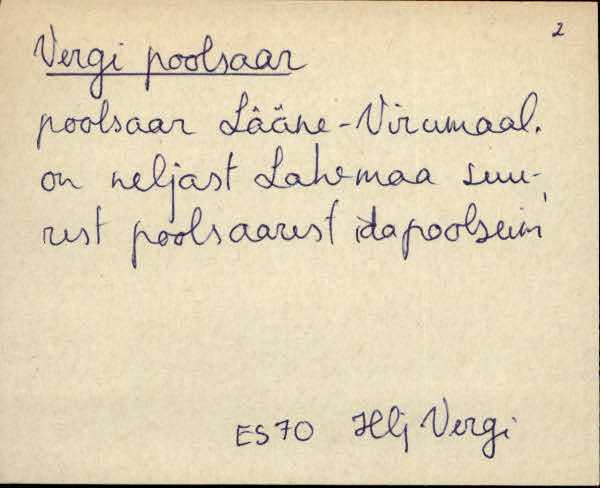 2
Vergi poolsaar
poolsaar Lääne-Virumaal.
on neljast Lahemaa suu-
rest poolsaarest idapoolseim
ES70 Hlj Vergi